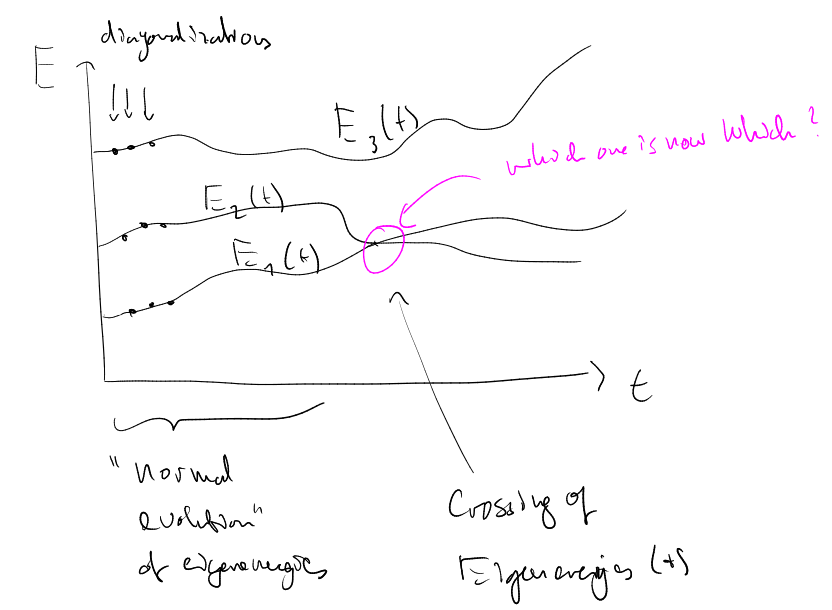 diagonalizations
E
E₃(t)
which one is now which?
E₂(t)
E₁(t)
t
"normal
evolution"
of eigenenergies
Crossing of
Eigenenergies (*)